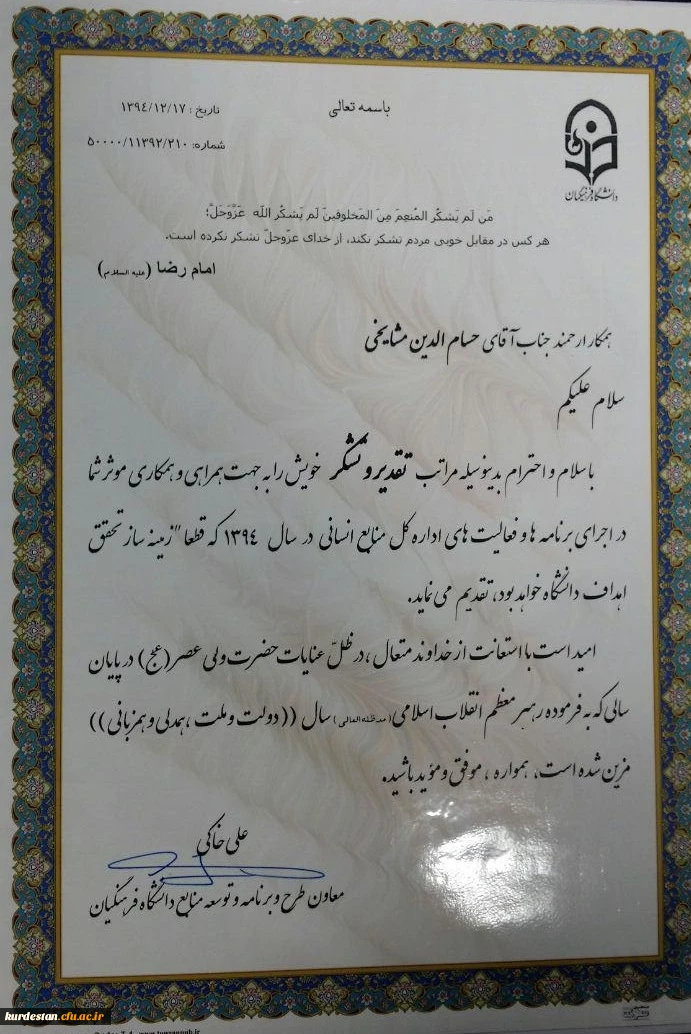 باسمه تعالی
تاریخ : ١٣٩٤/١٢/١٧
شماره: ٥٠٠٠٠/١١٣٩٢/٢١٠
دانشگاه فرهنگیان
مَن لَم یَشکُر المُنعِمَ مِنَ المَخلوقینَ لَم یَشکُر اللّه عَزَّوَجَلَّ؛
هر کس در مقابل خوبی مردم تشکر نکند، از خدای عزّوجلّ تشکر نکرده است.
امام رضا (علیه السلام)
همکار ارجمند جناب آقای حسام الدین مشایخی
سلام علیکم
با سلام و احترام بدینوسیله مراتب تقدیر و تشکر خویش را به جهت همراهی و همکاری موثر شما
در اجرای برنامه ها و فعالیت های اداره کل منابع انسانی در سال ١٣٩٤ که قطعا" زمینه ساز تحقق
اهداف دانشگاه خواهد بود، تقدیم می نماید.
امید است با استعانت از خداوند متعال ،در ظلّ عنایات حضرت ولی عصر (عج) در پایان
سالی که به فرموده رهبر معظم انقلاب اسلامی (مدظله العالی) سال ((دولت و ملت ،همدلی و همزبانی))
مزین شده است، همواره ، موفق و مؤید باشید.
علی خاکی
معاون طرح و برنامه و توسعه منابع دانشگاه فرهنگیان
kurdestan.cfu.ac.ir